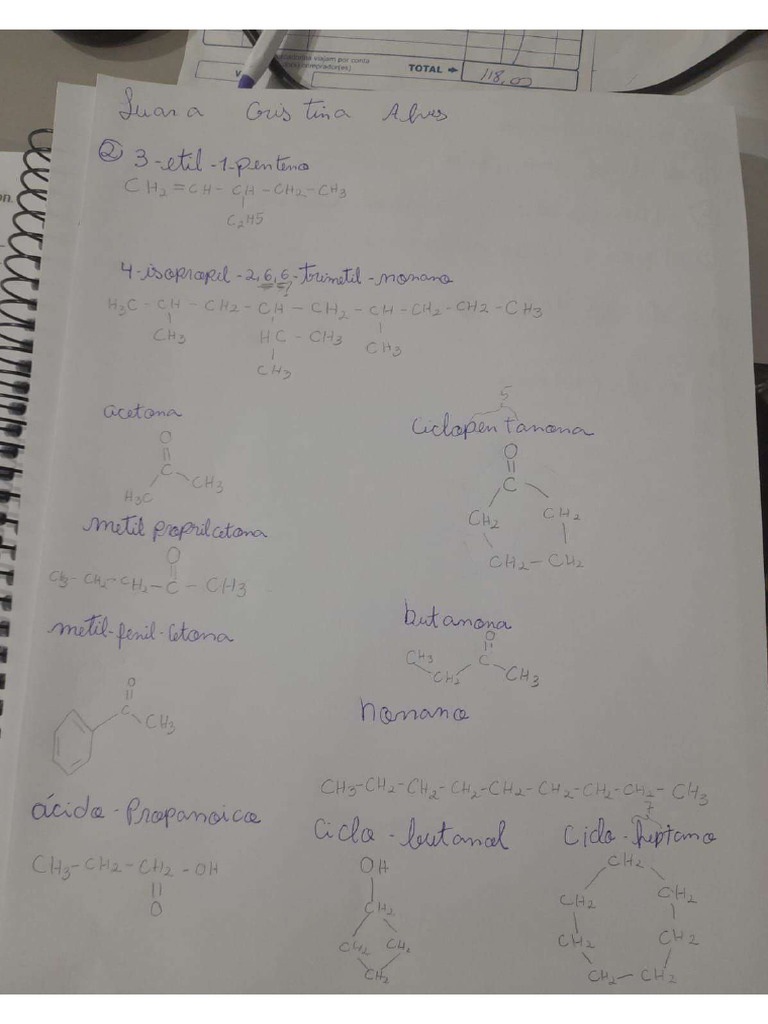 viajam por conta
comprador(es)
TOTAL 118,00
Luara Cristina Alves
② 3-etil-1-penteno
CH2=CH-CH-CH2-CH3
C2H5
4-isopropil-2,6,6-trimetil-nonano
?
H3C-CH-CH2-CH-CH2-CH-CH2-CH2-CH3
CH3 HC-CH3 CH3
CH3
acetona
O
C
H3C CH3
5
Ciclopentanona
O
C
CH2 CH2
CH2-CH2
metil propilcetona
O
CH3-CH2-CH2-C-CH3
metil-fenil-cetona
O
C
CH3
butanona
O
CH3 C
CH2 CH3
nonano
CH3-CH2-CH2-CH2-CH2-CH2-CH2-CH2-CH3
ácido-Propanoico
CH3-CH2-CH2-OH
O
Ciclo-butanol
OH
CH2
CH2 CH2
CH2
7
Ciclo-heptano
CH2
CH2 CH2
CH2 CH2
CH2-CH2